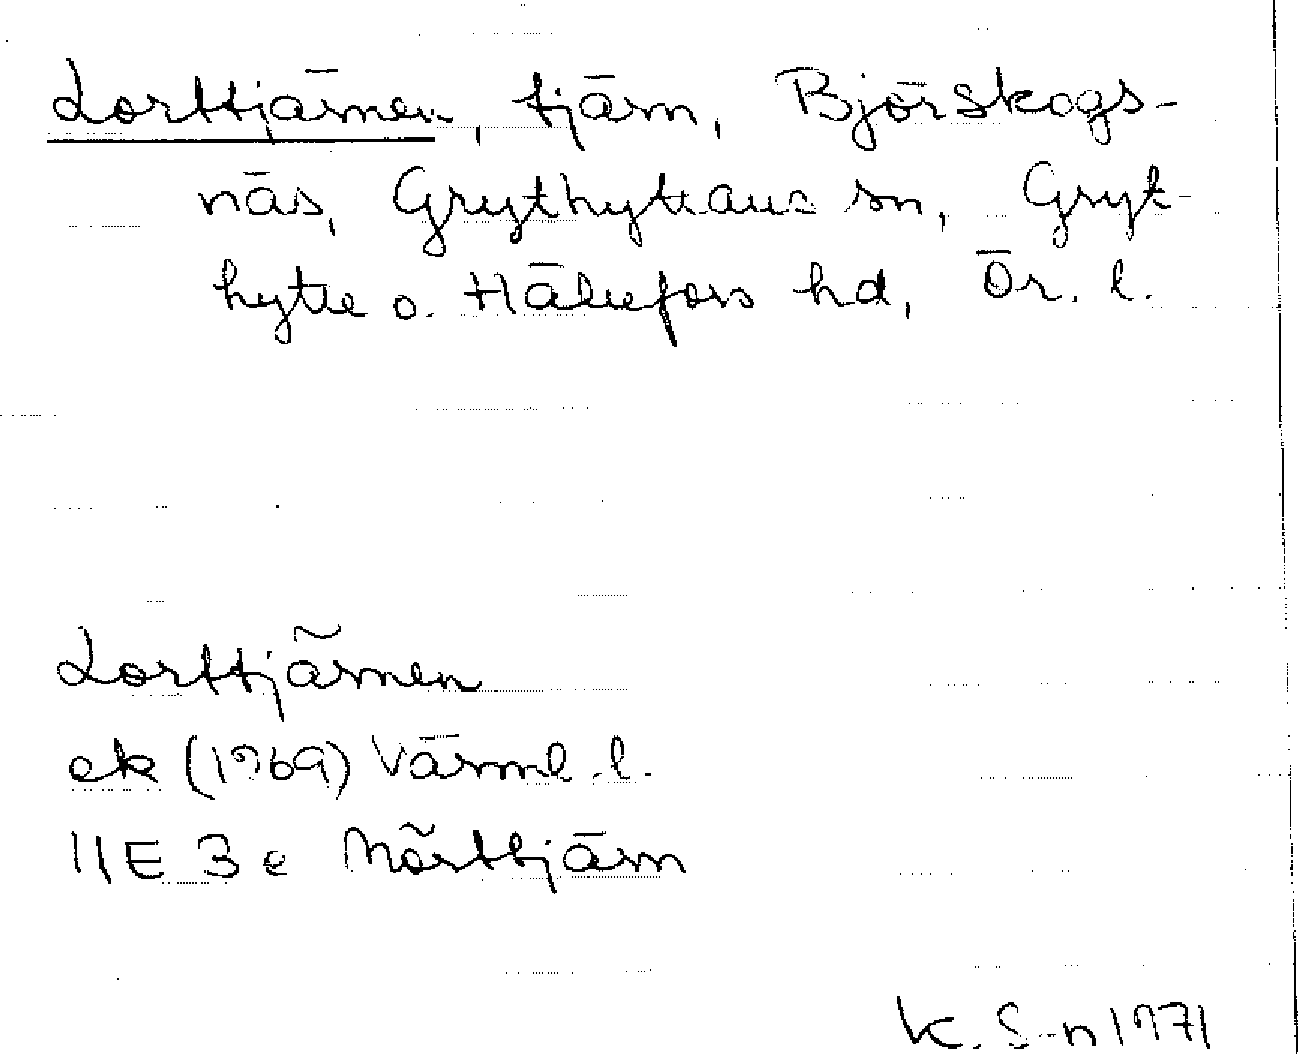 Lorttjärnen, tjärn, Björskogs-
näs, Grythyttans sn, Gryt-
hytte o. Hällefors hd, Ör. l.
Lorttjärnen
ek (1969) Värml. l.
11E 3e Mörttjärn
K. S-n 1971